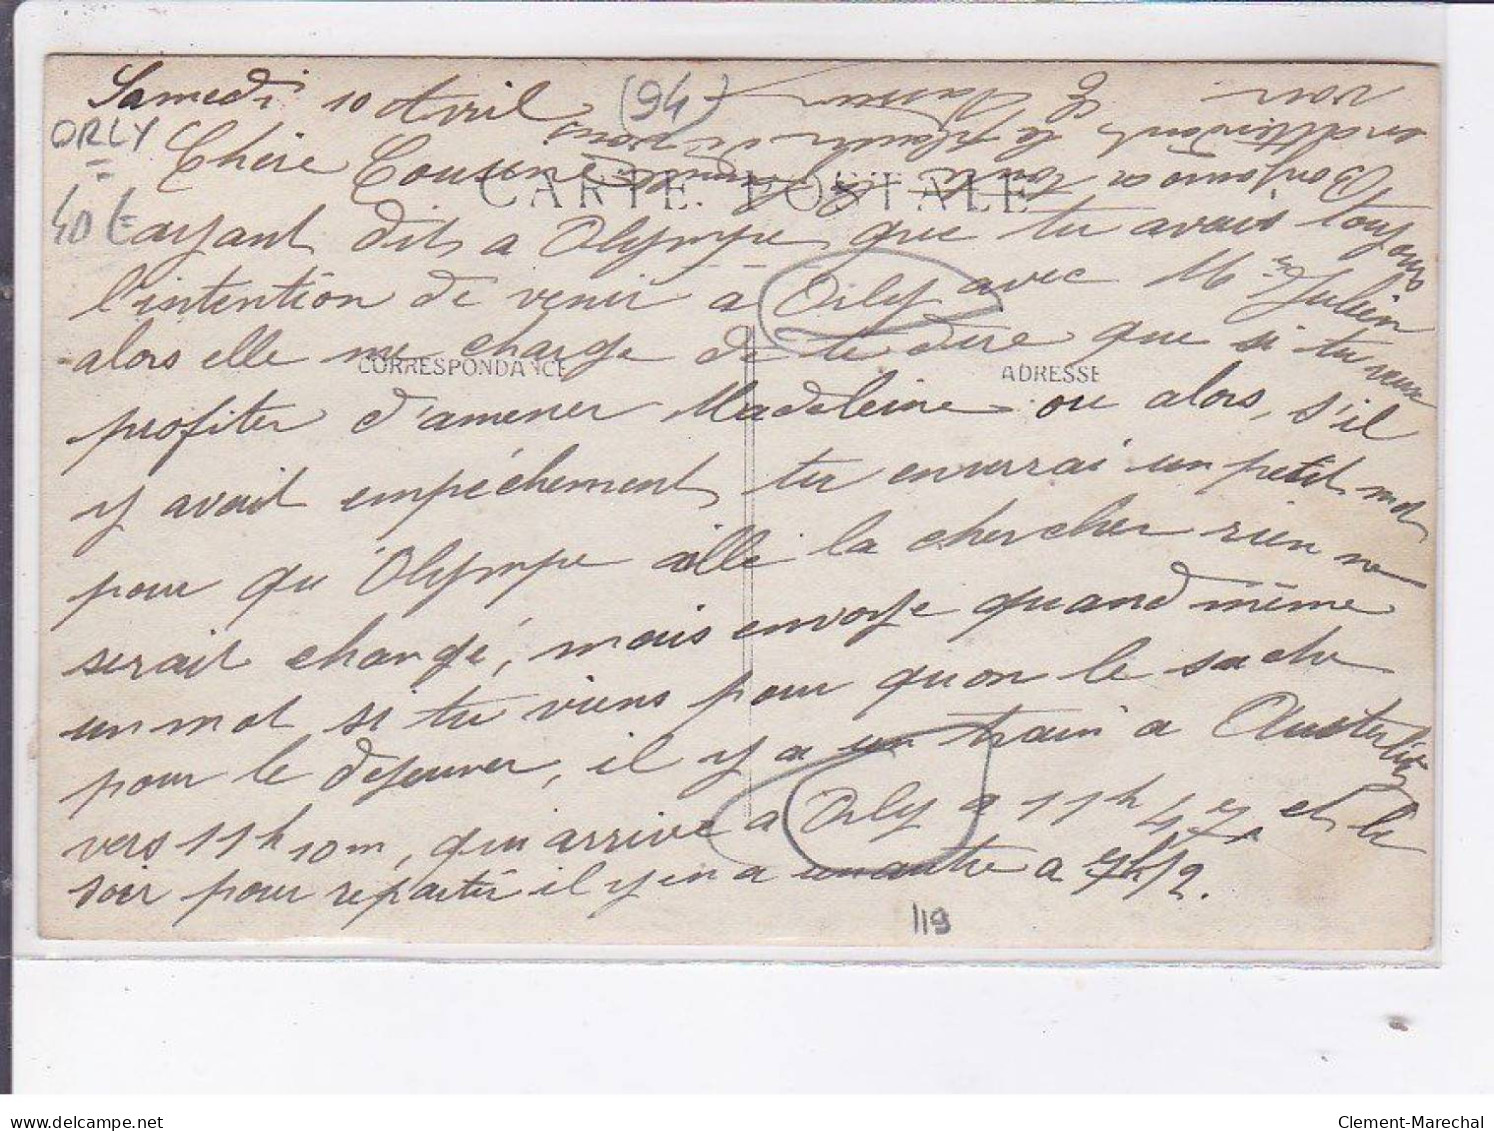 Samedi 10 Avril
(94)
ORLY
40 €
Chère Cousine
CARTE POSTALE
ayant dit a Olympe que tu avais toujours
l'intention de venir a Orly avec Mme Julien
alors elle me charge de te dire que si tu veux
CORRESPONDANCE
ADRESSE
profiter d'amener Madeleine ou alors, s'il
y avait empéchement, tu enverrai un petit mot
pour qu'Olympe aille la chercher rien ne
serait changé, mais envoye quand même
un mot si tu viens pour quon le sache
pour le dejeuner, il y a un train a Austerlitz
vers 11h 10m, qui arrive a Orly a 11h 47 et le
soir pour repartir il y en a un autre a 7h 1/2.
Bonjour a toute la famille
en attendant le plaisir de vous
voir
119
delcampe.net
Clement-Marechal